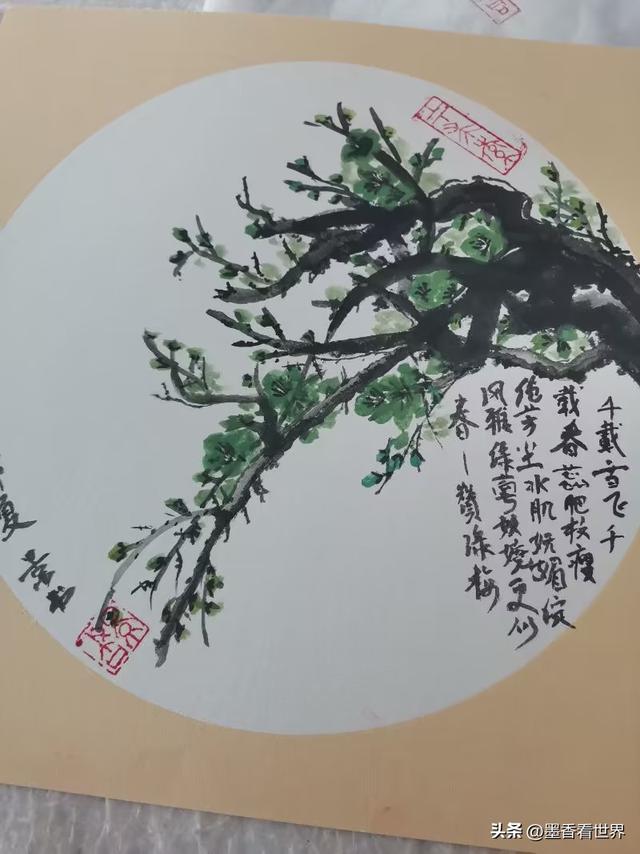 千载雪飞千
载香蕊肥枝瘦
绝芳尘水肌妩媚绽
风雅绿萼娇娆更似
春—赞绿梅
夏
头条 @墨香看世界